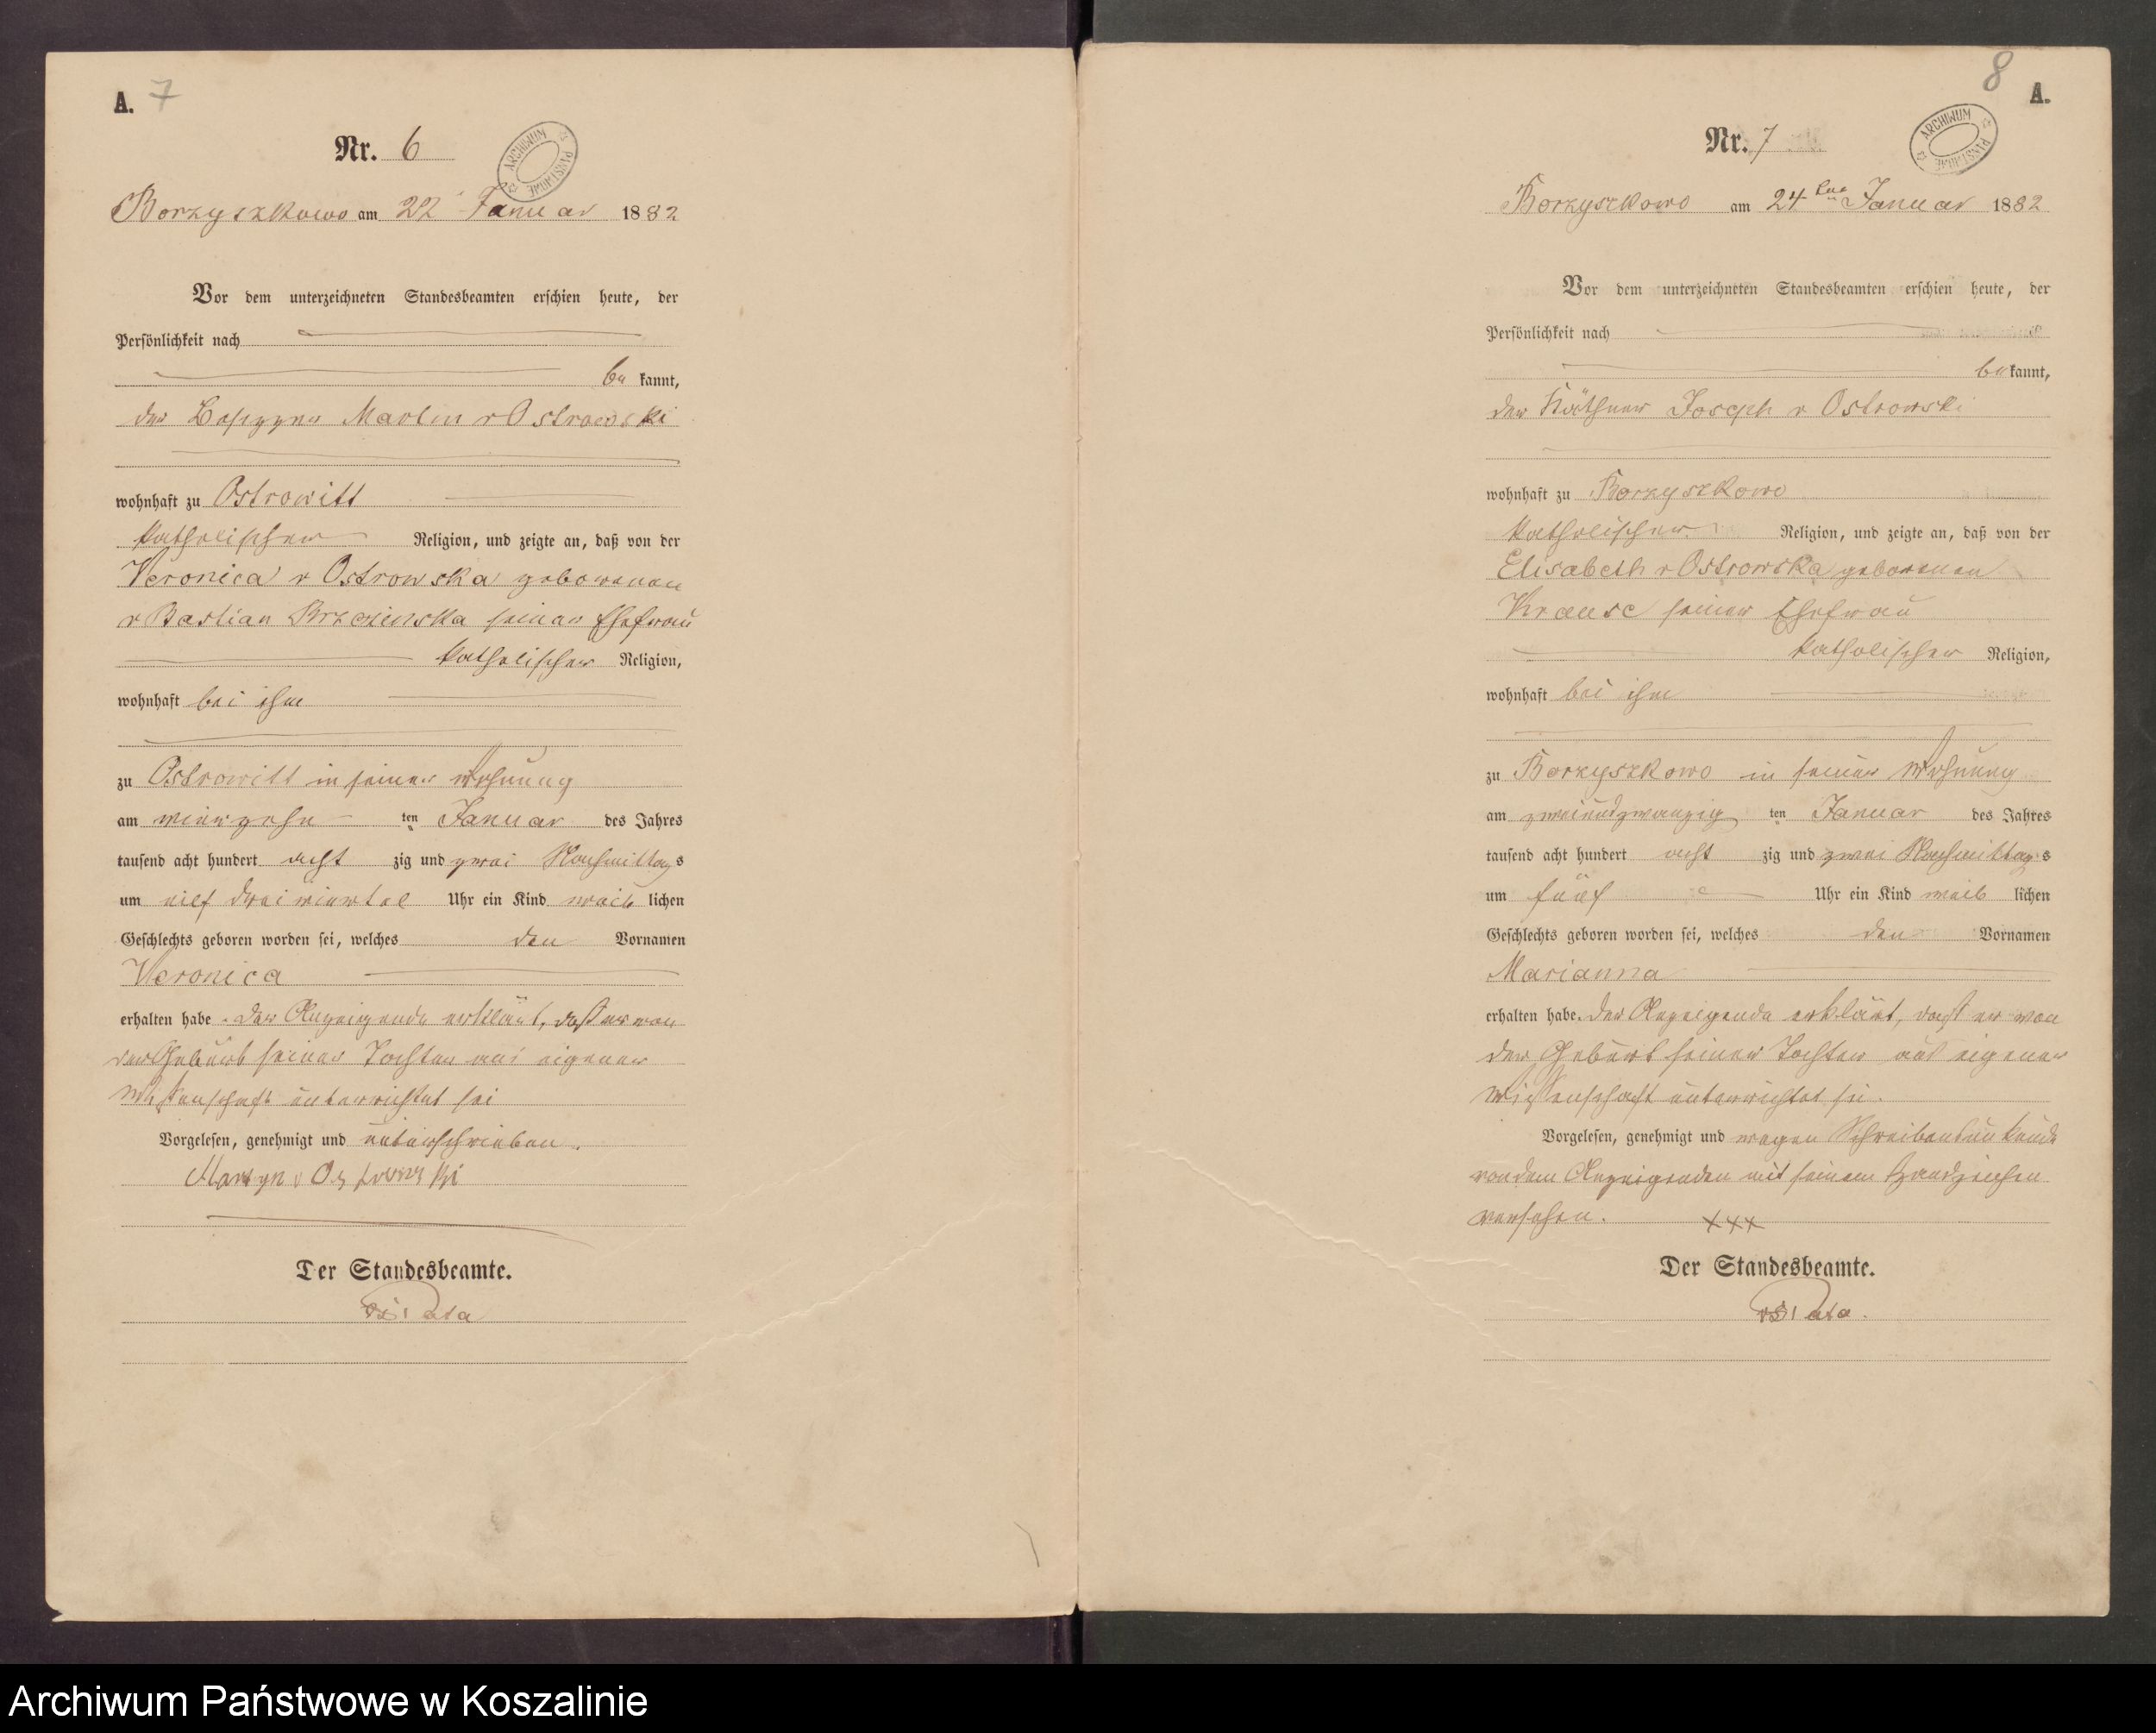 A. 7
Nr. 6
ARCHIWUM PAŃSTWOWE
Borzyszkowo am 22 Januar 1882
Vor dem unterzeichneten Standesbeamten erschien heute, der
Persönlichkeit nach
be kannt,
der Besitzer Martin v Ostrowski
wohnhaft zu Ostrowitt
katholischer Religion, und zeigte an, daß von der
Veronica v Ostrowska geborenen
v Bastian seiner Ehefrau
katholischer Religion,
wohnhaft bei ihm
zu Ostrowitt in seiner Wohnung
am vierzehn ten Januar des Jahres
tausend acht hundert acht zig und zwei Nachmittags
um elf dreiviertel Uhr ein Kind weib lichen
Geschlechts geboren worden sei, welches den Vornamen
Veronica
erhalten habe. Der Anzeigende erklärt, daß er von
der Geburt seiner Tochter aus eigener
Wissenschaft unterrichtet sei
Vorgelesen, genehmigt und unterschrieben.
Martyn v Ostrowski
Der Standesbeamte.
8 A.
Nr. 7
ARCHIWUM PAŃSTWOWE
Borzyszkowo am 24 ten Januar 1882
Vor dem unterzeichneten Standesbeamten erschien heute, der
Persönlichkeit nach
be kannt,
der Käthner Joseph v Ostrowski
wohnhaft zu Borzyszkowo
katholischer Religion, und zeigte an, daß von der
Elisabeth v Ostrowska geborenen
Krause seiner Ehefrau
katholischer Religion,
wohnhaft bei ihm
zu Borzyszkowo in seiner Wohnung
am zweiundzwanzig ten Januar des Jahres
tausend acht hundert acht zig und zwei Nachmittags
um fünf Uhr ein Kind weib lichen
Geschlechts geboren worden sei, welches den Vornamen
Marianna
erhalten habe. Der Anzeigende erklärt, daß er von
der Geburt seiner Tochter aus eigener
Wissenschaft unterrichtet sei.
Vorgelesen, genehmigt und wegen Schreibensunkunde
von dem Anzeigenden mit seinem Handzeichen
versehen. +++
Der Standesbeamte.
Archiwum Państwowe w Koszalinie